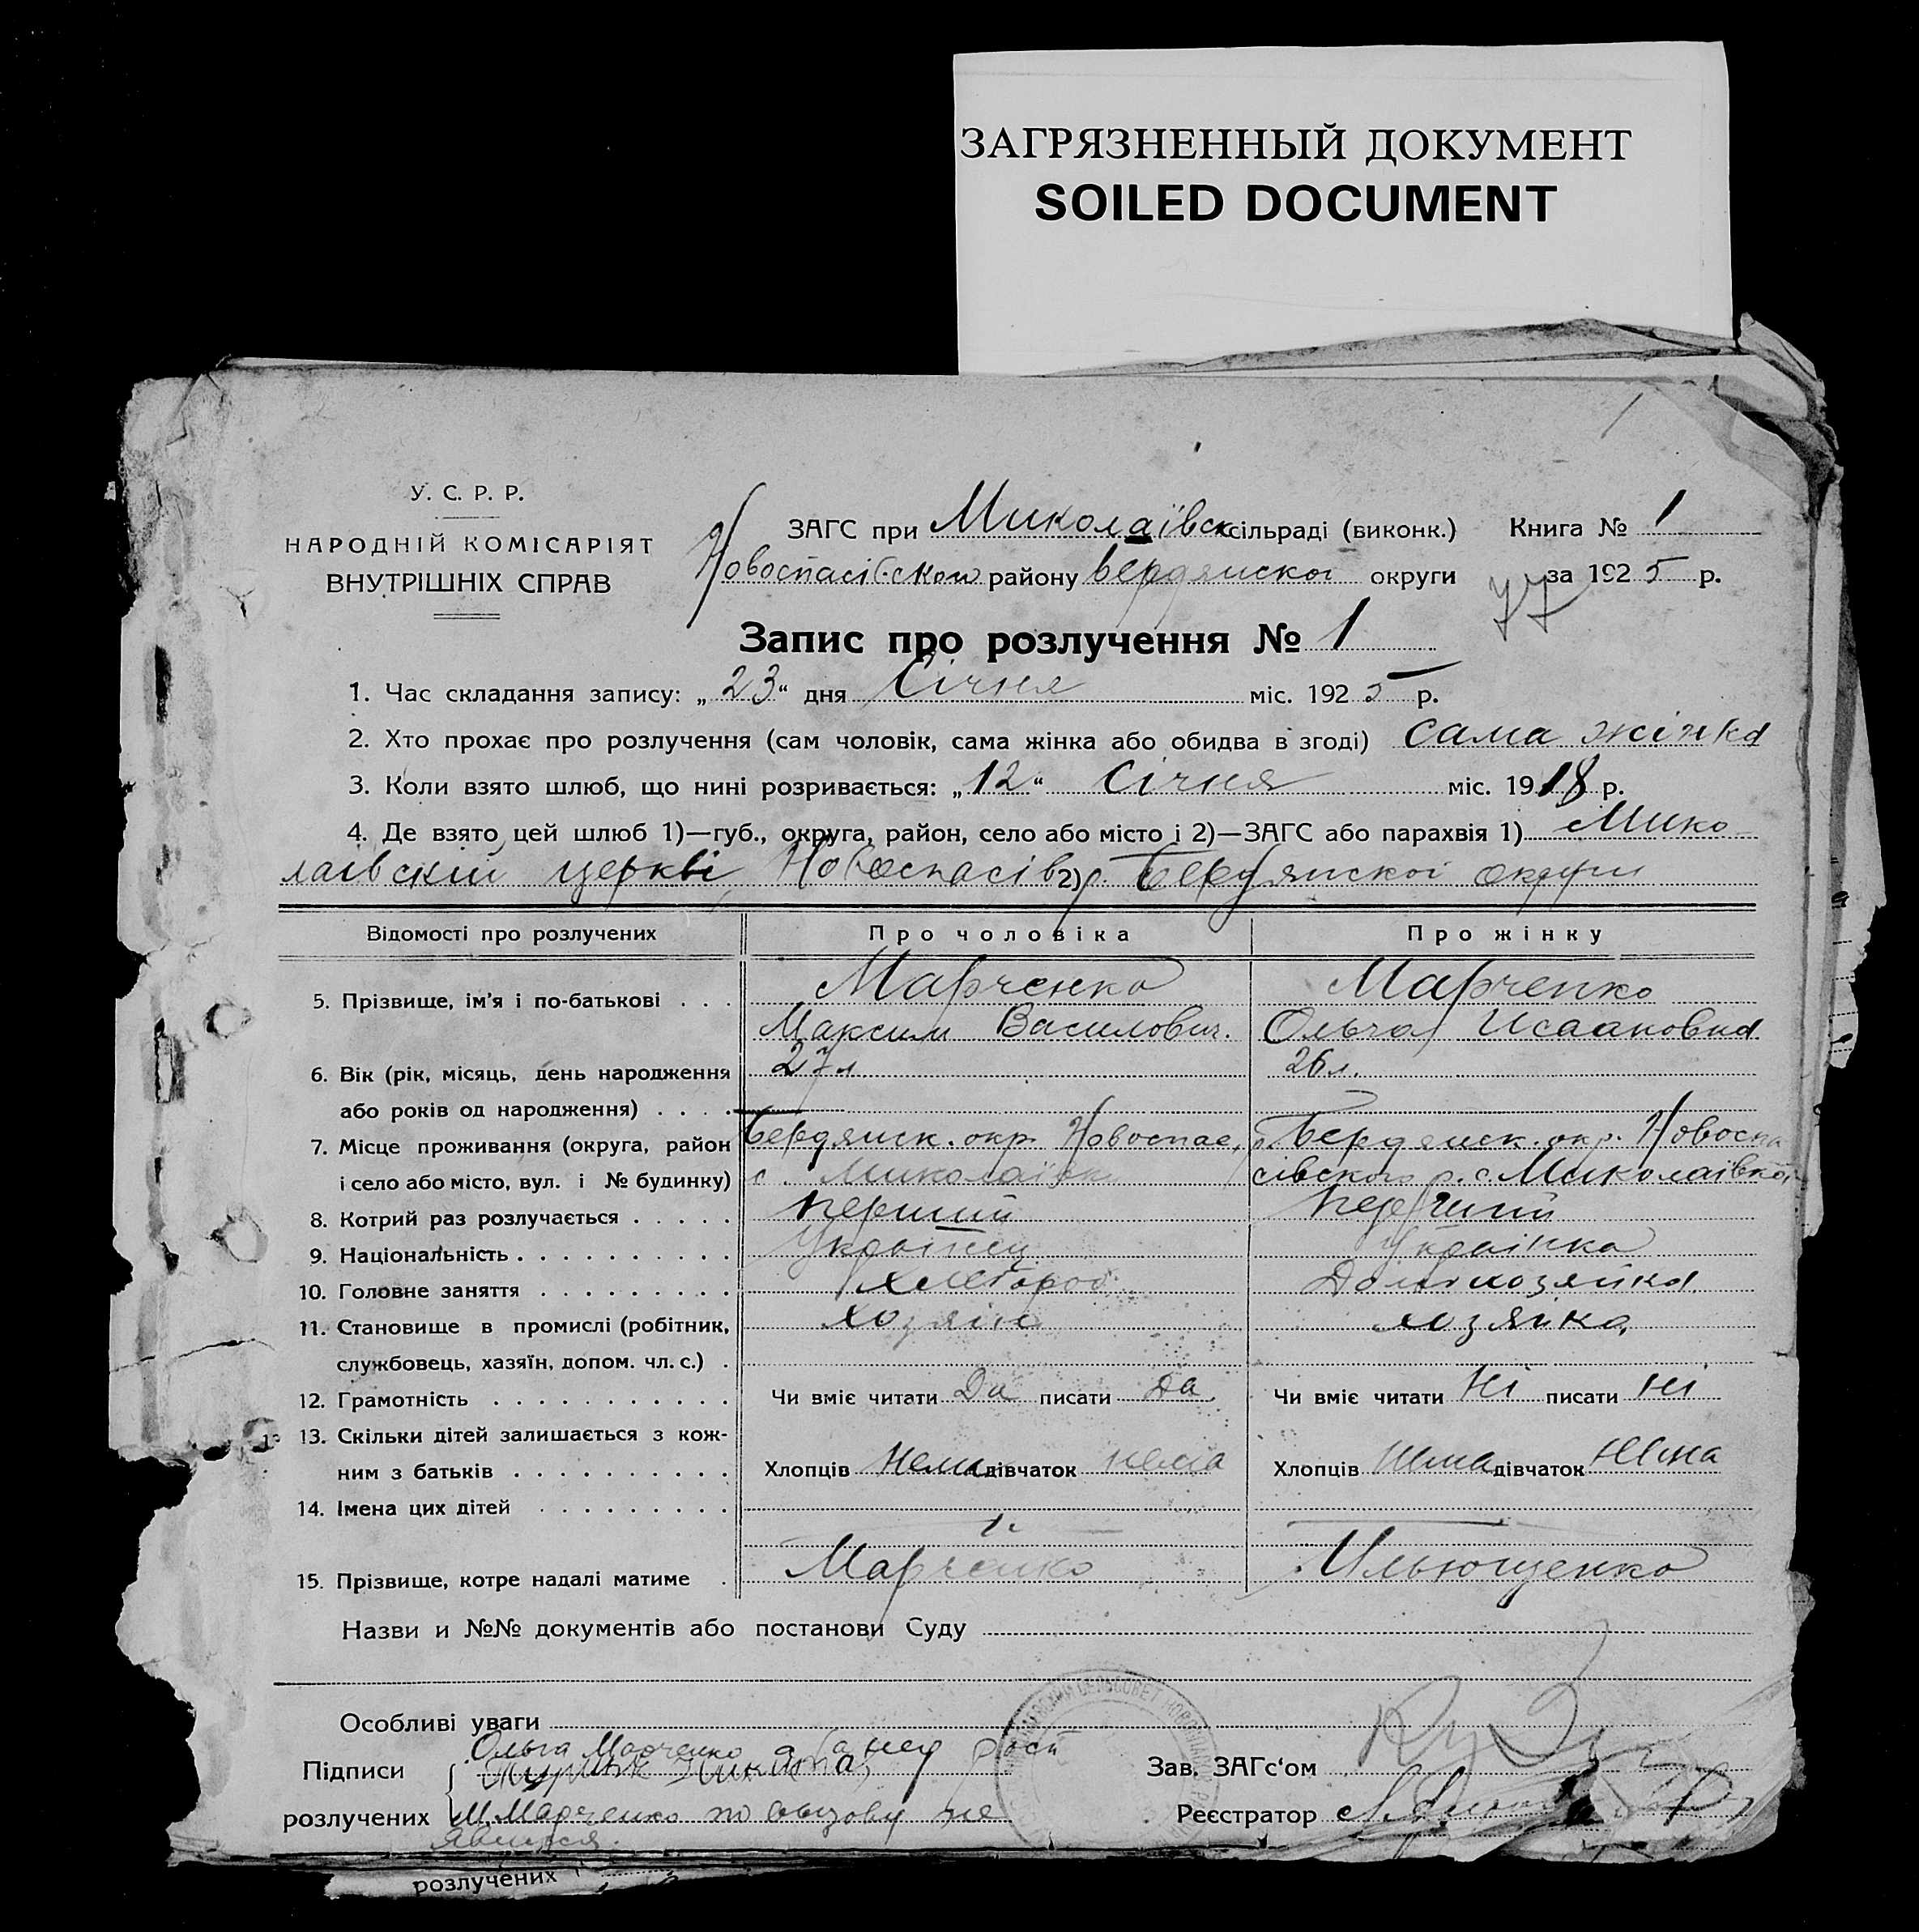 ЗАГРЯЗНЕННЫЙ ДОКУМЕНТ
SOILED DOCUMENT
1
У. С. Р. Р.
НАРОДНІЙ КОМІСАРІЯТ
ВНУТРІШНІХ СПРАВ
ЗАГС при Миколаївск сільраді (виконк.) Книга № 1
Новоспасівскои району Бердянскоі округи за 1925 р.
77
Запис про розлучення № 1
1. Час складання запису: „23“ дня Січня міс. 1925 р.
2. Хто прохає про розлучення (сам чоловік, сама жінка або обидва в згоді) сама жінка
3. Коли взято шлюб, що нині розривається: „12“ Січня міс. 1918 р.
4. Де взято цей шлюб 1)—губ., округа, район, село або місто і 2)—ЗАГС або парахвія 1) Мико
лаівскій церкві, Новоспасів 2) р. Бердянскоі округи
Відомості про розлучених Про чоловіка Про жінку
5. Прізвище, ім'я і по-батькові . . . Марченко Марченко
Максим Василович. Ольга Исааковна
6. Вік (рік, місяць, день народження 27 л 26 л.
або років од народження) . . . .
7. Місце проживання (округа, район Бердянск. окр. Новоспас, Бердянск. окр. Новоспа
і село або місто, вул. і № будинку) с. Миколаївк сівского р. с. Миколаівкоі
8. Котрий раз розлучається . . . . . перший перший
9. Національність . . . . . . . . . . Українец Українка
10. Головне заняття . . . . . . . . . хлібороб Домохозяйка
11. Становище в промислі (робітник, хозяїн хозяйка
службовець, хазяїн, допом. чл. с.) .
12. Грамотність . . . . . . . . . . . Чи вміє читати Да писати да Чи вміє читати Ні писати ні
13. Скільки дітей залишається з кож-
ним з батьків . . . . . . . . . . Хлопців Нема дівчаток нема Хлопців Нема дівчаток Нема
14. Імена цих дітей . . . . . . . . .
15. Прізвище, котре надалі матиме . Марченко Ильющенко
Назви и №№ документів або постанови Суду
Особливі уваги
Ольга Марченко а за неу расп
Підписи Зав. ЗАГс'ом
розлучених М. Марченко по вызову не Реєстратор
явился.
розлучених